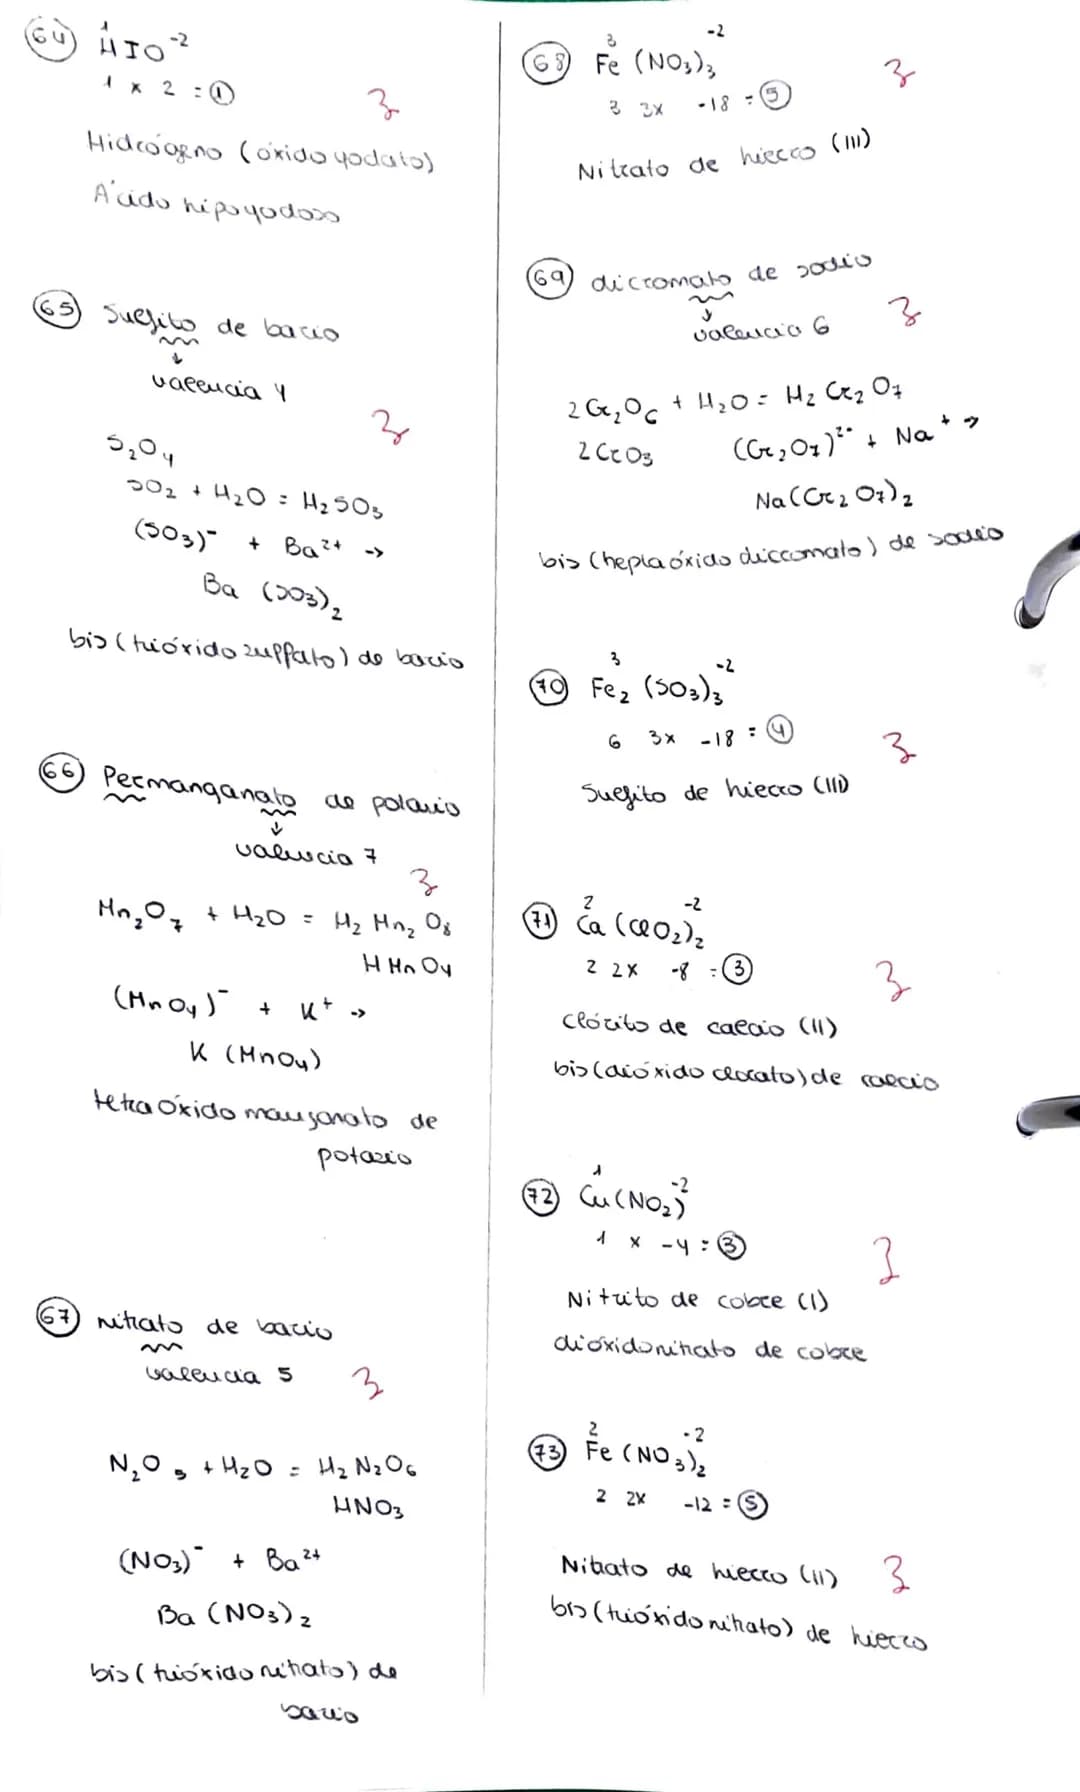 64 HIO
1 -2
1 x 2 = 1
3
Hidrógeno (óxido yodato)
Ácido hipoyodoso
65 Sulfito de bario
↓
valencia 4
3
S₂O₄
SO₂ + H₂O = H₂SO₃
(SO₃)⁻ + Ba²⁺ ->
Ba (SO₃)₂
bis (trióxido sulfato) de bario
66 Permanganato de potasio
↓
valencia 7
3
Mn₂O₇ + H₂O = H₂ Mn₂ O₈
H Mn O₄
(Mn O₄)⁻ + K⁺ ->
K (MnO₄)
tetraóxido manganato de
potasio
67 nitrato de bario
valencia 5
3
N₂O₅ + H₂O = H₂ N₂O₆
HNO₃
(NO₃)⁻ + Ba²⁺
Ba (NO₃)₂
bis (trióxido nitrato) de
bario
3 -2
68 Fe (NO₃)₃
3
3 3x -18 = 5
Nitrato de hierro (III)
69 dicromato de sodio
↓
valencia 6
3
2 Cr₂O₆ + H₂O = H₂ Cr₂ O₇
2 CrO₃ (Cr₂O₇)²⁻ + Na⁺ →
Na (Cr₂ O₇)₂
bis (heptaóxido dicromato) de sodio
3 -2
70 Fe₂ (SO₃)₃
6 3x -18 = 4
3
Sulfito de hierro (III)
2 -2
71 Ca (ClO₂)₂
2 2x -8 = 3
3
Clorito de calcio (II)
bis (dióxido clorato) de calcio
1 -2
72 Cu (NO₂)
1 x -4 = 3
3
Nitrito de cobre (I)
dióxidonitrato de cobre
2 -2
73 Fe (NO₃)₂
2 2x -12 = 5
Nitrato de hierro (II) 3
bis (trióxido nitrato) de hierro